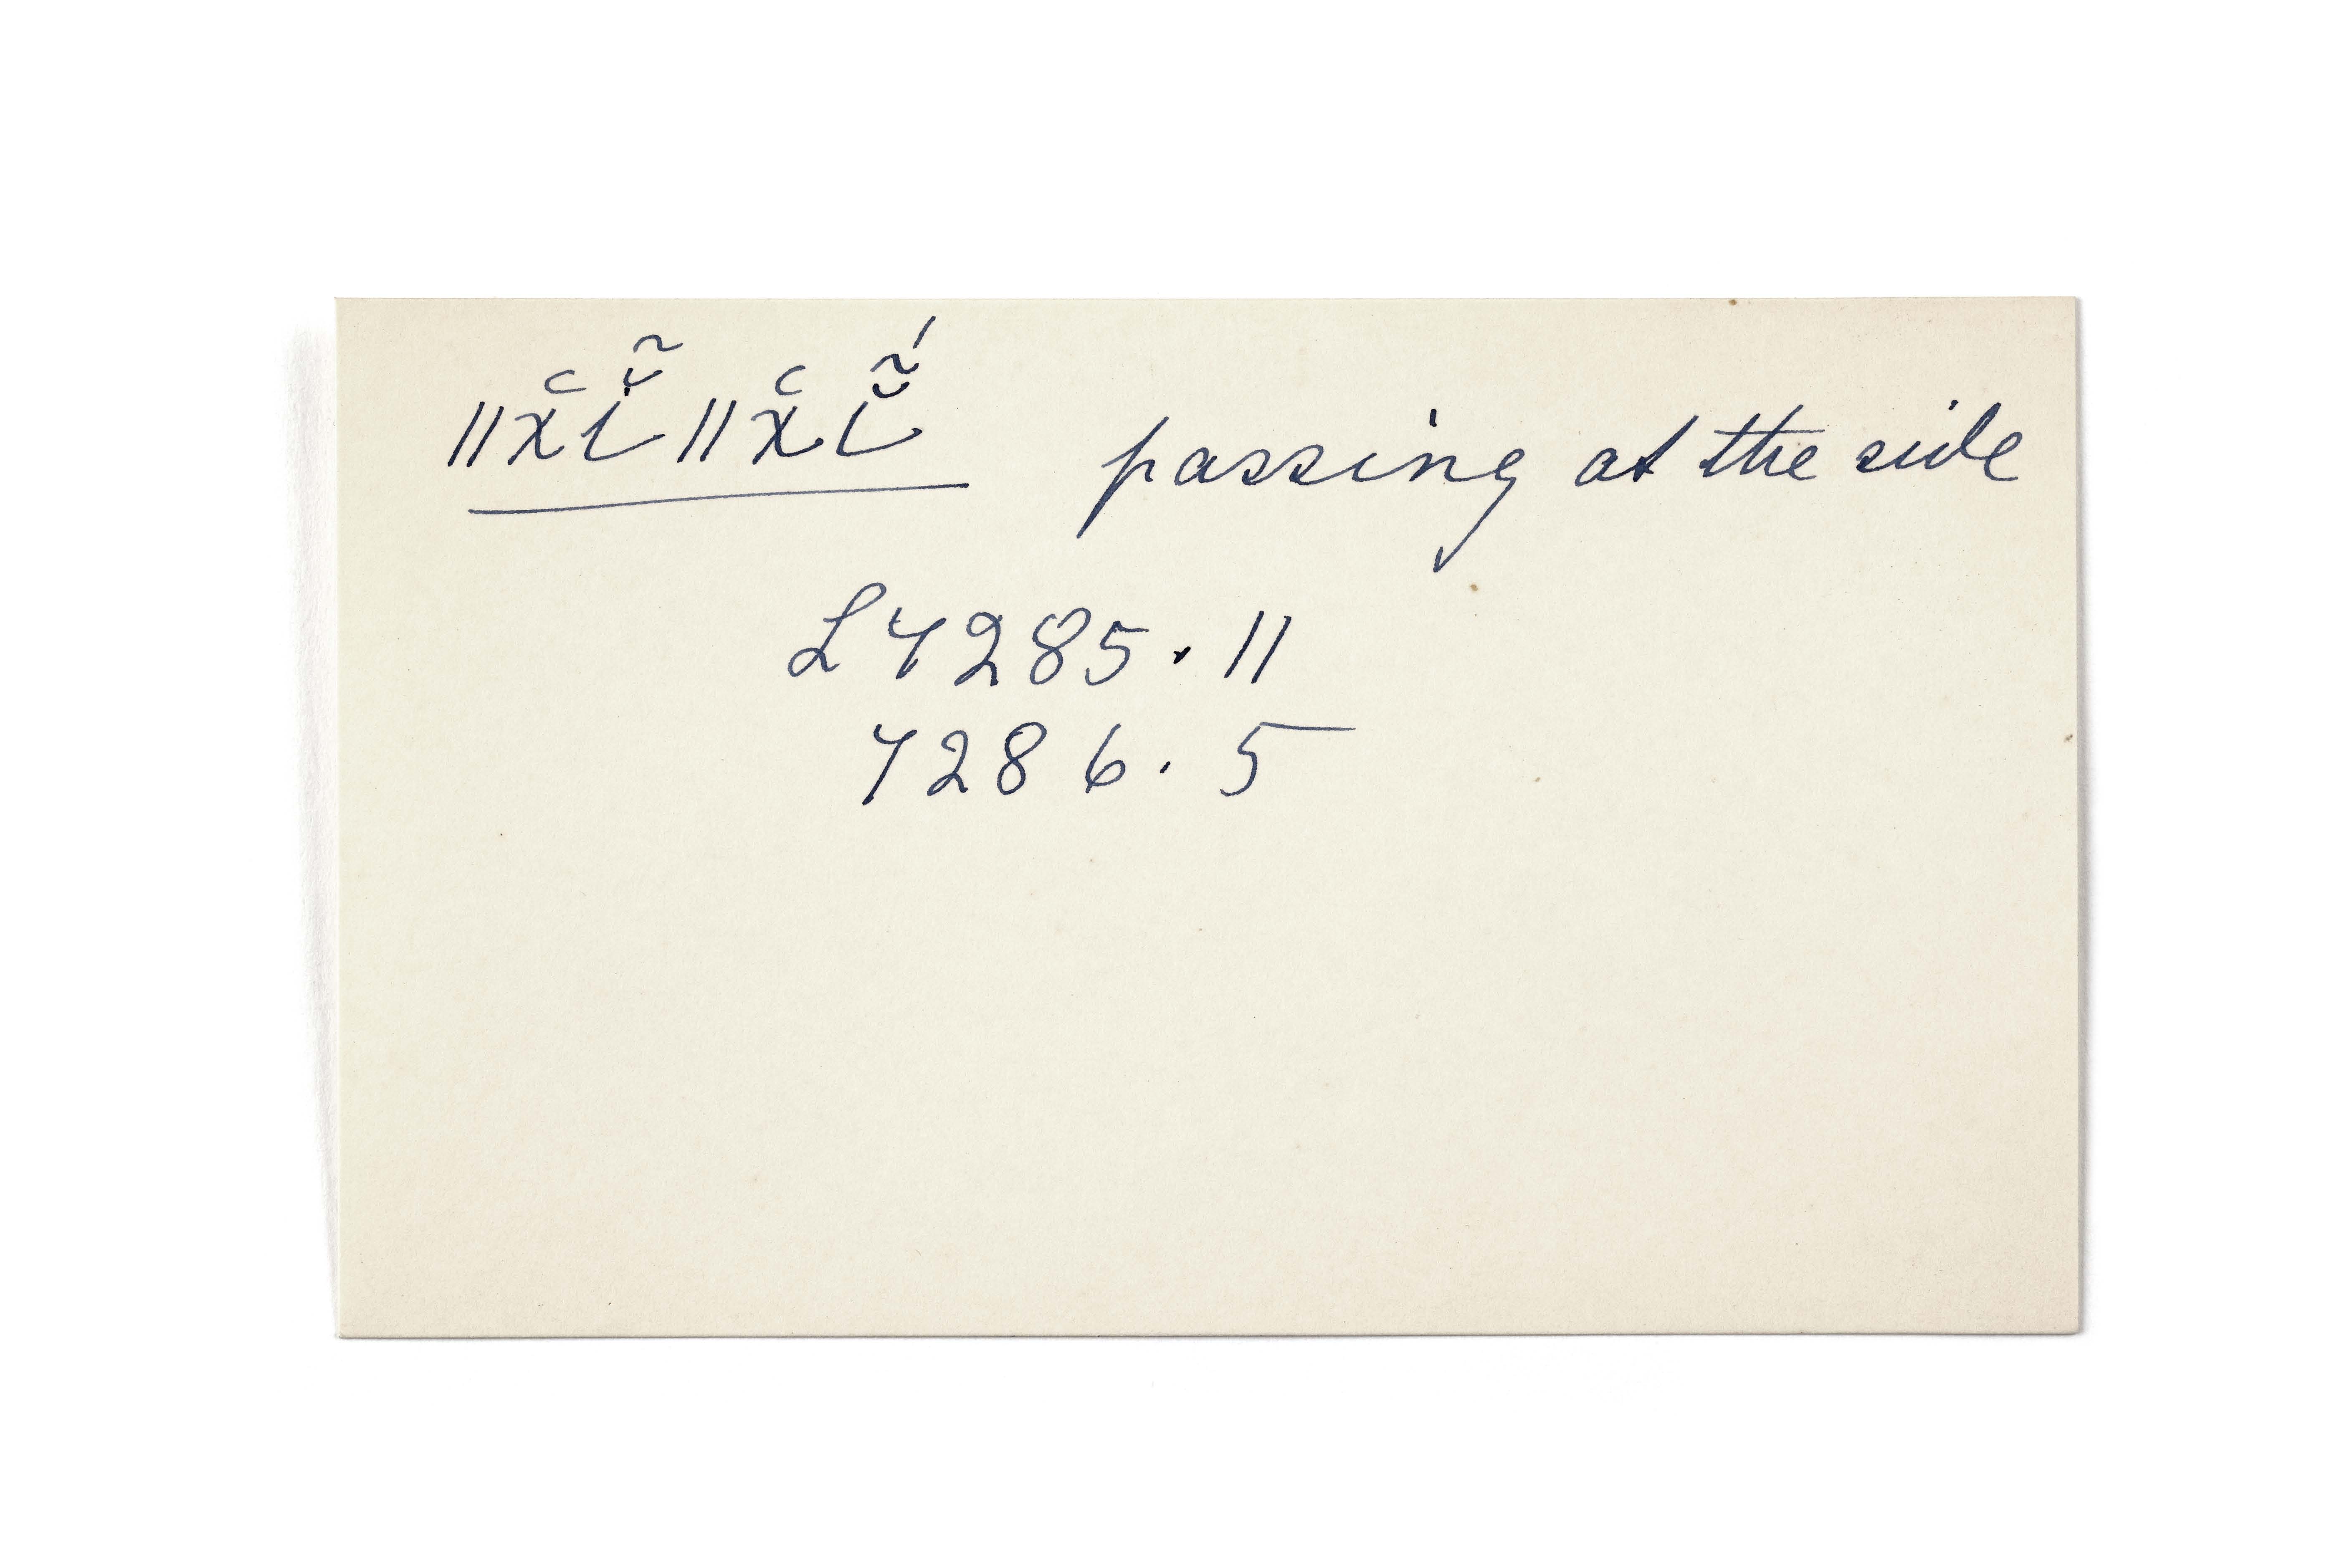 ǁxͨĭ̃ǁxͨĭ̃́ passing at the side
L7285. 11
7286. 5